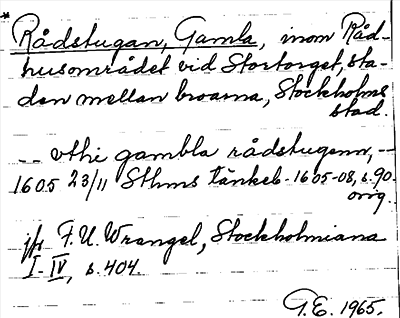 * Rådstugan, Gamla, inom Råd-
husområdet vid Stortorget, sta-
den mellan broarna, Stockholms
stad.
-- vthi gambla rådstugenn, --
1605 23/11 Sthms tänkeb. 1605-08, s. 90.
orig.
jfr F. U. Wrangel, Stockholmiana
I-IV, s. 404.
G.E. 1965.